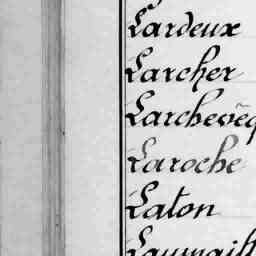 Lardeux
Larcher
Larchevêq
Laroche
Laton